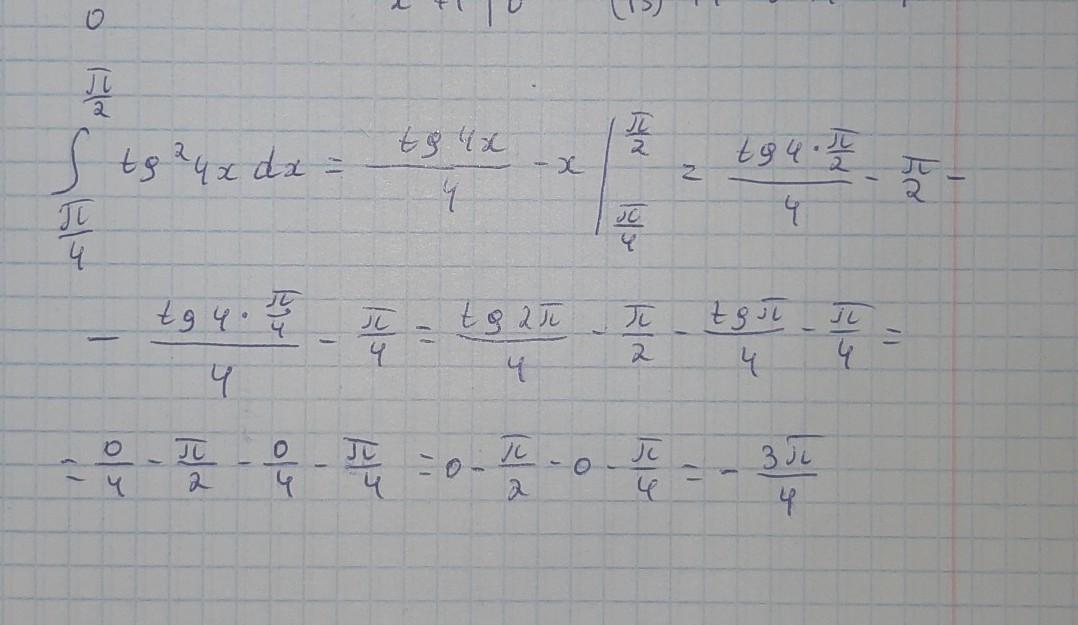 0
π/2
∫ tg²4x dx = tg 4x / 4 - x | π/2 π/4 = tg 4·π/2 / 4 - π/2 -
π/4
- tg 4·π/4 / 4 - π/4 = tg 2π / 4 - π/2 - tg π / 4 - π/4 =
= 0/4 - π/2 - 0/4 - π/4 = 0 - π/2 - 0 - π/4 = - 3π/4